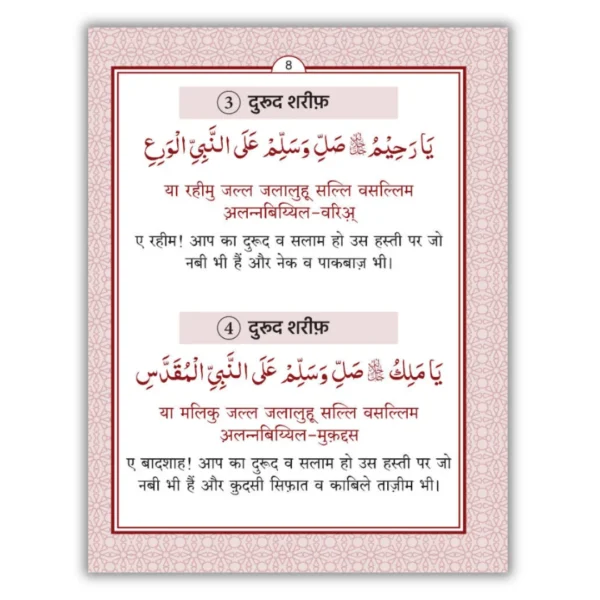 8
③ दुरूद शरीफ़
يَا رَحِيْمُ ﷻ صَلِّ وَسَلِّمْ عَلَى النَّبِيِّ الْوَرِعِ
या रहीमु जल्ल जलालुहू सल्लि वसल्लिम
अ़लन्नबिय्यिल-वरिअ़्
ए रहीम! आप का दुरूद व सलाम हो उस हस्ती पर जो
नबी भी हैं और नेक व पाकबाज़ भी।
④ दुरूद शरीफ़
يَا مَلِكُ ﷻ صَلِّ وَسَلِّمْ عَلَى النَّبِيِّ الْمُقَدَّسِ
या मलिकु जल्ल जलालुहू सल्लि वसल्लिम
अ़लन्नबिय्यिल-मुक़द्दस
ए बादशाह! आप का दुरूद व सलाम हो उस हस्ती पर जो
नबी भी हैं और क़ुदसी सिफ़ात व काबिले ताज़ीम भी।